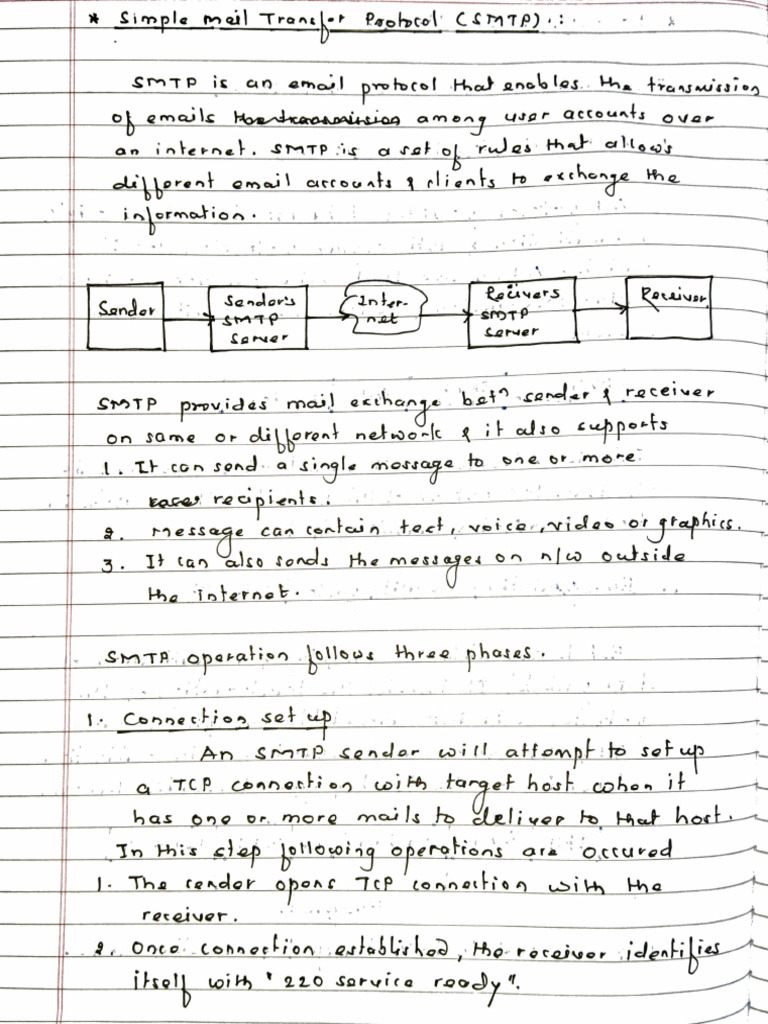 * Simple Mail Transfer Protocol (SMTP).:
SMTP is an email protocol that enables the transmission
of emails the transmission among user accounts over
an internet. SMTP is a set of rules that allows
different email accounts & clients to exchange the
information.
Sender
Sender's
SMTP
Server
Inter-
net
Recivers
SMTP
Server
Receiver
SMTP provides mail exchange betn sender & receiver
on same or different network & it also supports
1. It can send a single message to one or more
recipients.
2. Message can contain text, voice, video or graphics.
3. It can also sends the messages on n/w outside
the internet.
SMTP operation follows three phases.
1. Connection set up
An SMTP sender will attempt to set up
a TCP connection with target host when it
has one or more mails to deliver to that host.
In this step following operations are occured
1. The sender opens TCP connection with the
receiver.
2. Once connection established, the receiver identifies
itself with "220 service ready".